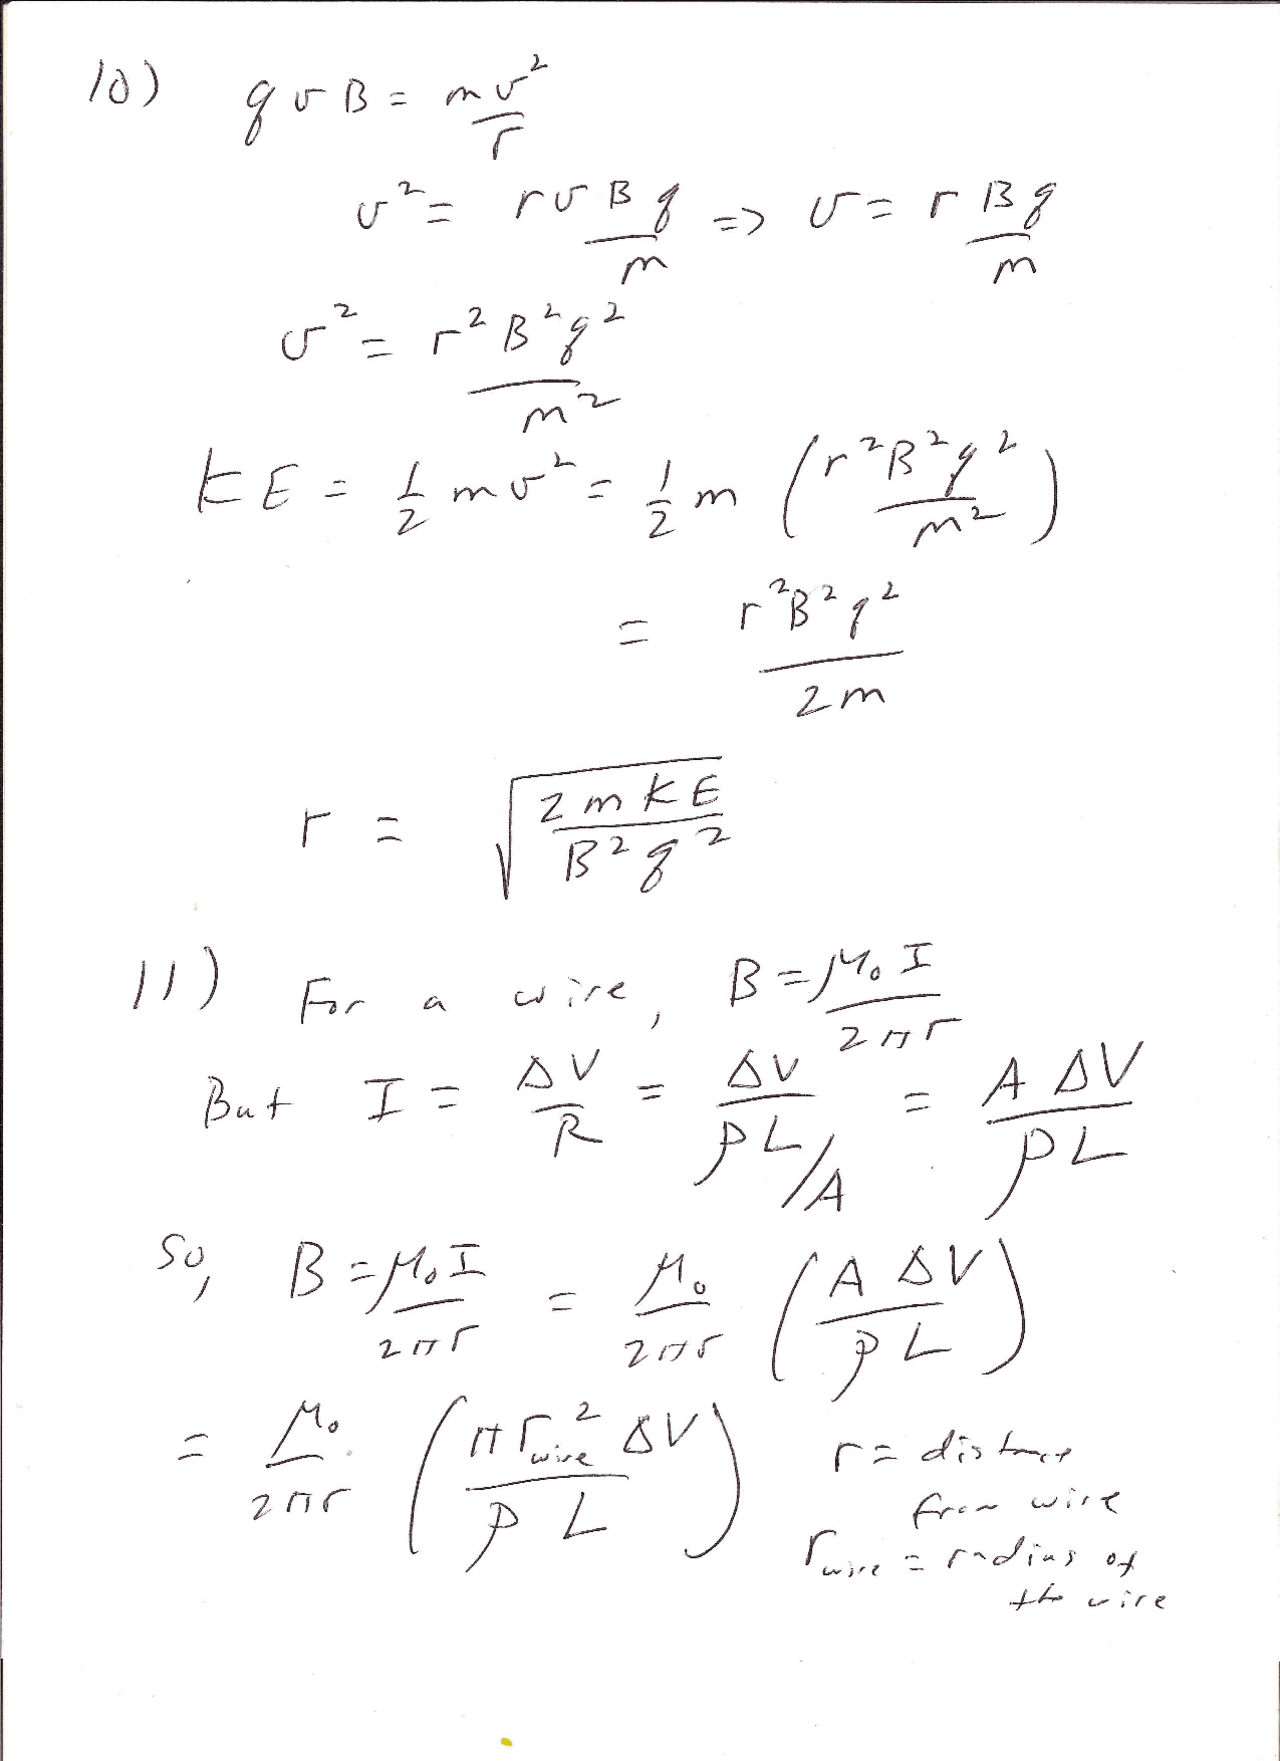 10) qvB = mv²/r
v² = rvBq/m => v = rBq/m
v² = r²B²q²/m²
KE = 1/2 mv² = 1/2 m (r²B²q²/m²)
= r²B²q²/2m
r = √(2mKE/B²q²)
11) For a wire, B = μ₀I/2πr
But I = ΔV/R = ΔV/(ρL/A) = AΔV/ρL
So, B = μ₀I/2πr = μ₀/2πr (AΔV/ρL)
= μ₀/2πr (πr_wire²ΔV/ρL)
r = distance
from wire
r_wire = radius of
the wire